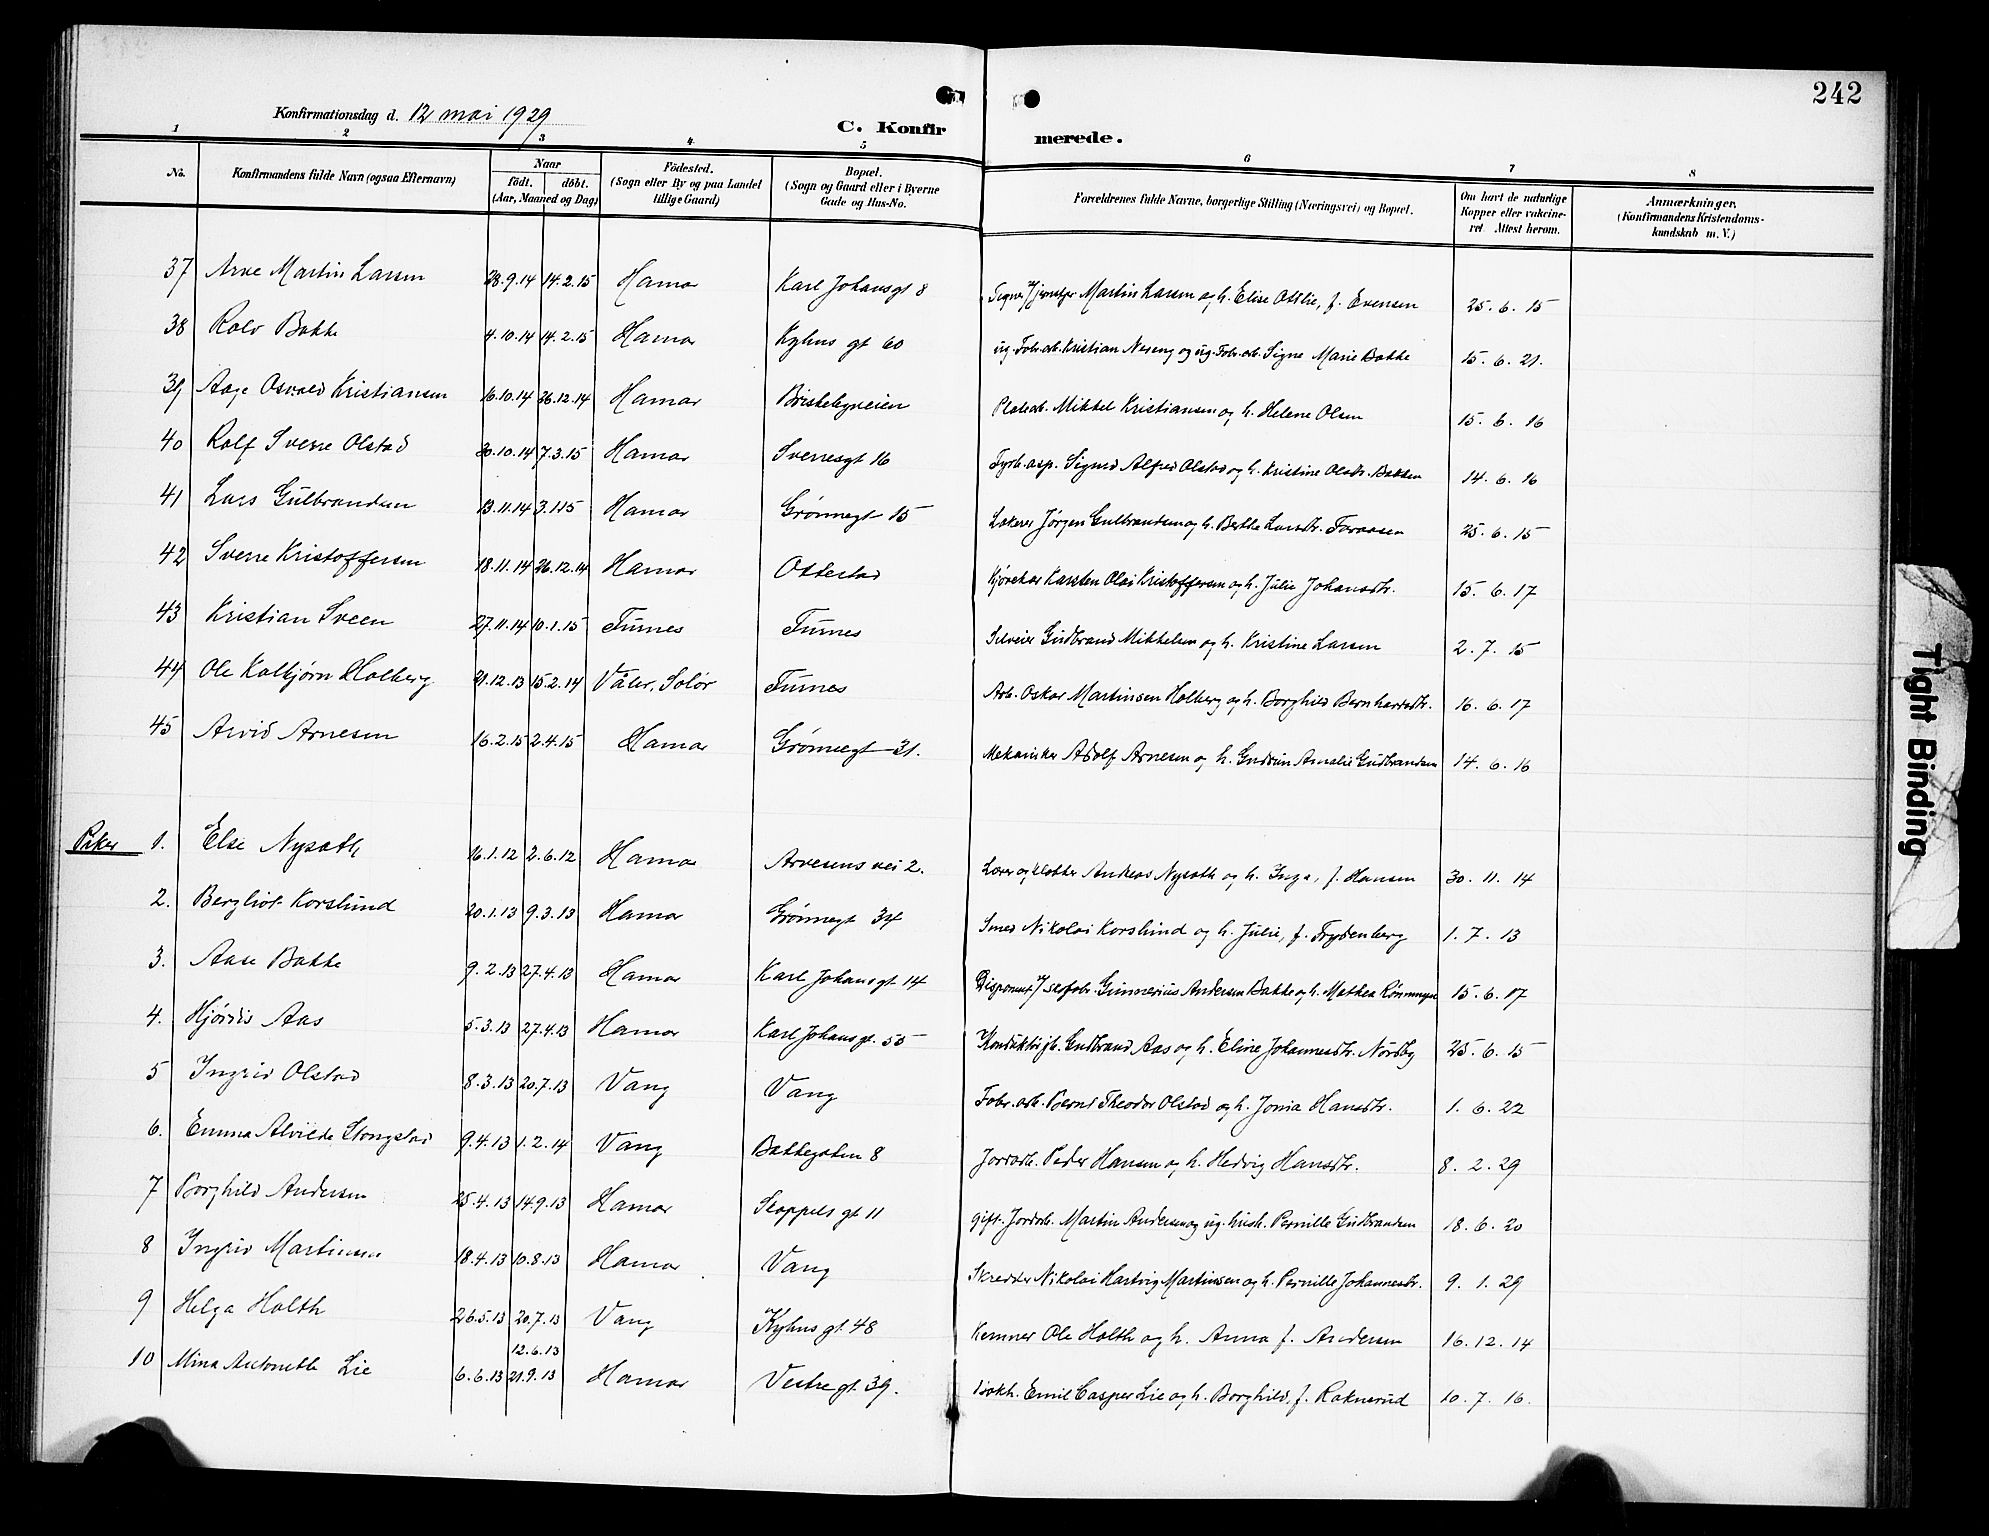 242
Konfirmationsdag d. 12 mai 1929
C. Konfir merede.
1 2 3 4 5 6 7 8
No. Konfirmandens fulde Navn (ogsaa Efternavn) Naar født. døbt. (Aar, Maaned og Dag) Fødested. (Sogn eller By og paa Landet tillige Gaard) Bopæl. (Sogn og Gaard eller i Byerne Gade og Hus-No. Forældrenes fulde Navne, borgerlige Stilling (Næringsvei) og Bopæl. Om havt de naturlige Kopper eller vakcineret. Attest herom. Anmærkninger. (Konfirmandens Kristendomskundskab m. V.)
37 Arne Martin Larsen 28.9.14 14.2.15 Hamar Karl Johansgt 8 Martin Larsen og h. Elise Otilie, f. Evensen 25.6.15
38 Rolv Bakke 4.10.14 14.2.15 Hamar Kyhns gt 60 ug. Fabr.arb. Kristian Neseng og ug. Fabr.arb. Signe Marie Bakke 15.6.21.
39 Aage Osvald Kristiansen 16.10.14 26.12.14 Hamar Briskebyveien Mikkel Kristiansen og h. Helene Olsen 15.6.16
40 Rolf Sverre Olstad 30.10.14 7.3.15 Hamar Sverresgt 16 Fyrb.asp. Sigurd Alfred Olstad og h. Kristine Olsdtr. Bakken 14.6.16
41 Lars Gulbrandsen 13.11.14 3.1.15 Hamar Grønnegt 15 Jørgen Gulbrandsen og h. Berthe Larsdtr. 25.6.15
42 Sverre Kristoffersen 18.11.14 26.12.14 Hamar Ottestad Kjørekar Karsten Olai Kristoffersen og h. Julie Johansdtr. 15.6.17
43 Kristian Sveen 27.11.14 10.1.15 Furnes Furnes Gudbrand Mikkelsen og h. Kristine Larsen 2.7.15
44 Ole Kolbjørn Holberg 21.12.13 15.2.14 Våler, Solør Furnes Arb. Oskar Martinsen Holberg og h. Borghild Bernhardsdtr. 16.6.17
45 Arvid Arnesen 16.2.15 2.4.15 Hamar Grønnegt 31. Mekaniker Adolf Arnesen og h. Gudrun Amalie Gudbrandsen 14.6.16
Piker 1. Else Nysæth 16.1.12 2.6.12 Hamar Arvesens vei 2. Lærer og klokker Andreas Nysæth og h. Inga, f. Hansen 30.11.14
2. Bergliot Korslund 20.1.13 9.3.13 Hamar Grønnegt 34 Smed Nikolai Korslund og h. Julie, f. Frydenberg 1.7.13
3. Aase Bakke 9.2.13 27.4.13 Hamar Karl Johansgt 14 Disponent / skofabr. Gunnerius Andersen Bakke og h. Mathea Rønningen 15.6.17
4. Hjørdis Aas 5.3.13 27.4.13 Hamar Karl Johansgt. 55 Konduktør jb. Gudbrand Aas og h. Eline Johannesdtr. Nordby 25.6.15
5 Ingrid Olstad 8.3.13 20.7.13 Vang Vang Fabr.arb. Bernt Theodor Olstad og h. Jonia Hansdtr. 1.6.22
6. Emma Alvilde Stongstad 9.4.13 1.2.14 Vang Bakkegaten 8 Jordarb. Peder Hansen og h. Hedvig Hansdtr. 8.2.29
7 Borghild Andersen 25.4.13 14.9.13 Hamar Skappels gt 11 gift. Jordarb. Martin Andersen og ug. hush. Pernille Gudbrandsen 18.6.20
8 Ingrid Martinsen 18.4.13 10.8.13 Hamar Vang Skredder Nikolai Hartvig Martinsen og h. Pernille Johannesdtr. 9.1.29
9 Helga Holth 26.5.13 20.7.13 Vang Kyhns gt. 48 Kemner Ole Holth og h. Anna f. Andersen 16.12.14
12.6.13
10 Mina Antonette Lie 6.6.13 21.9.13 Hamar Vestre gt. 39. Emil Casper Lie og h. Borghild, f. Raknerud 10.7.16.
Tight Binding